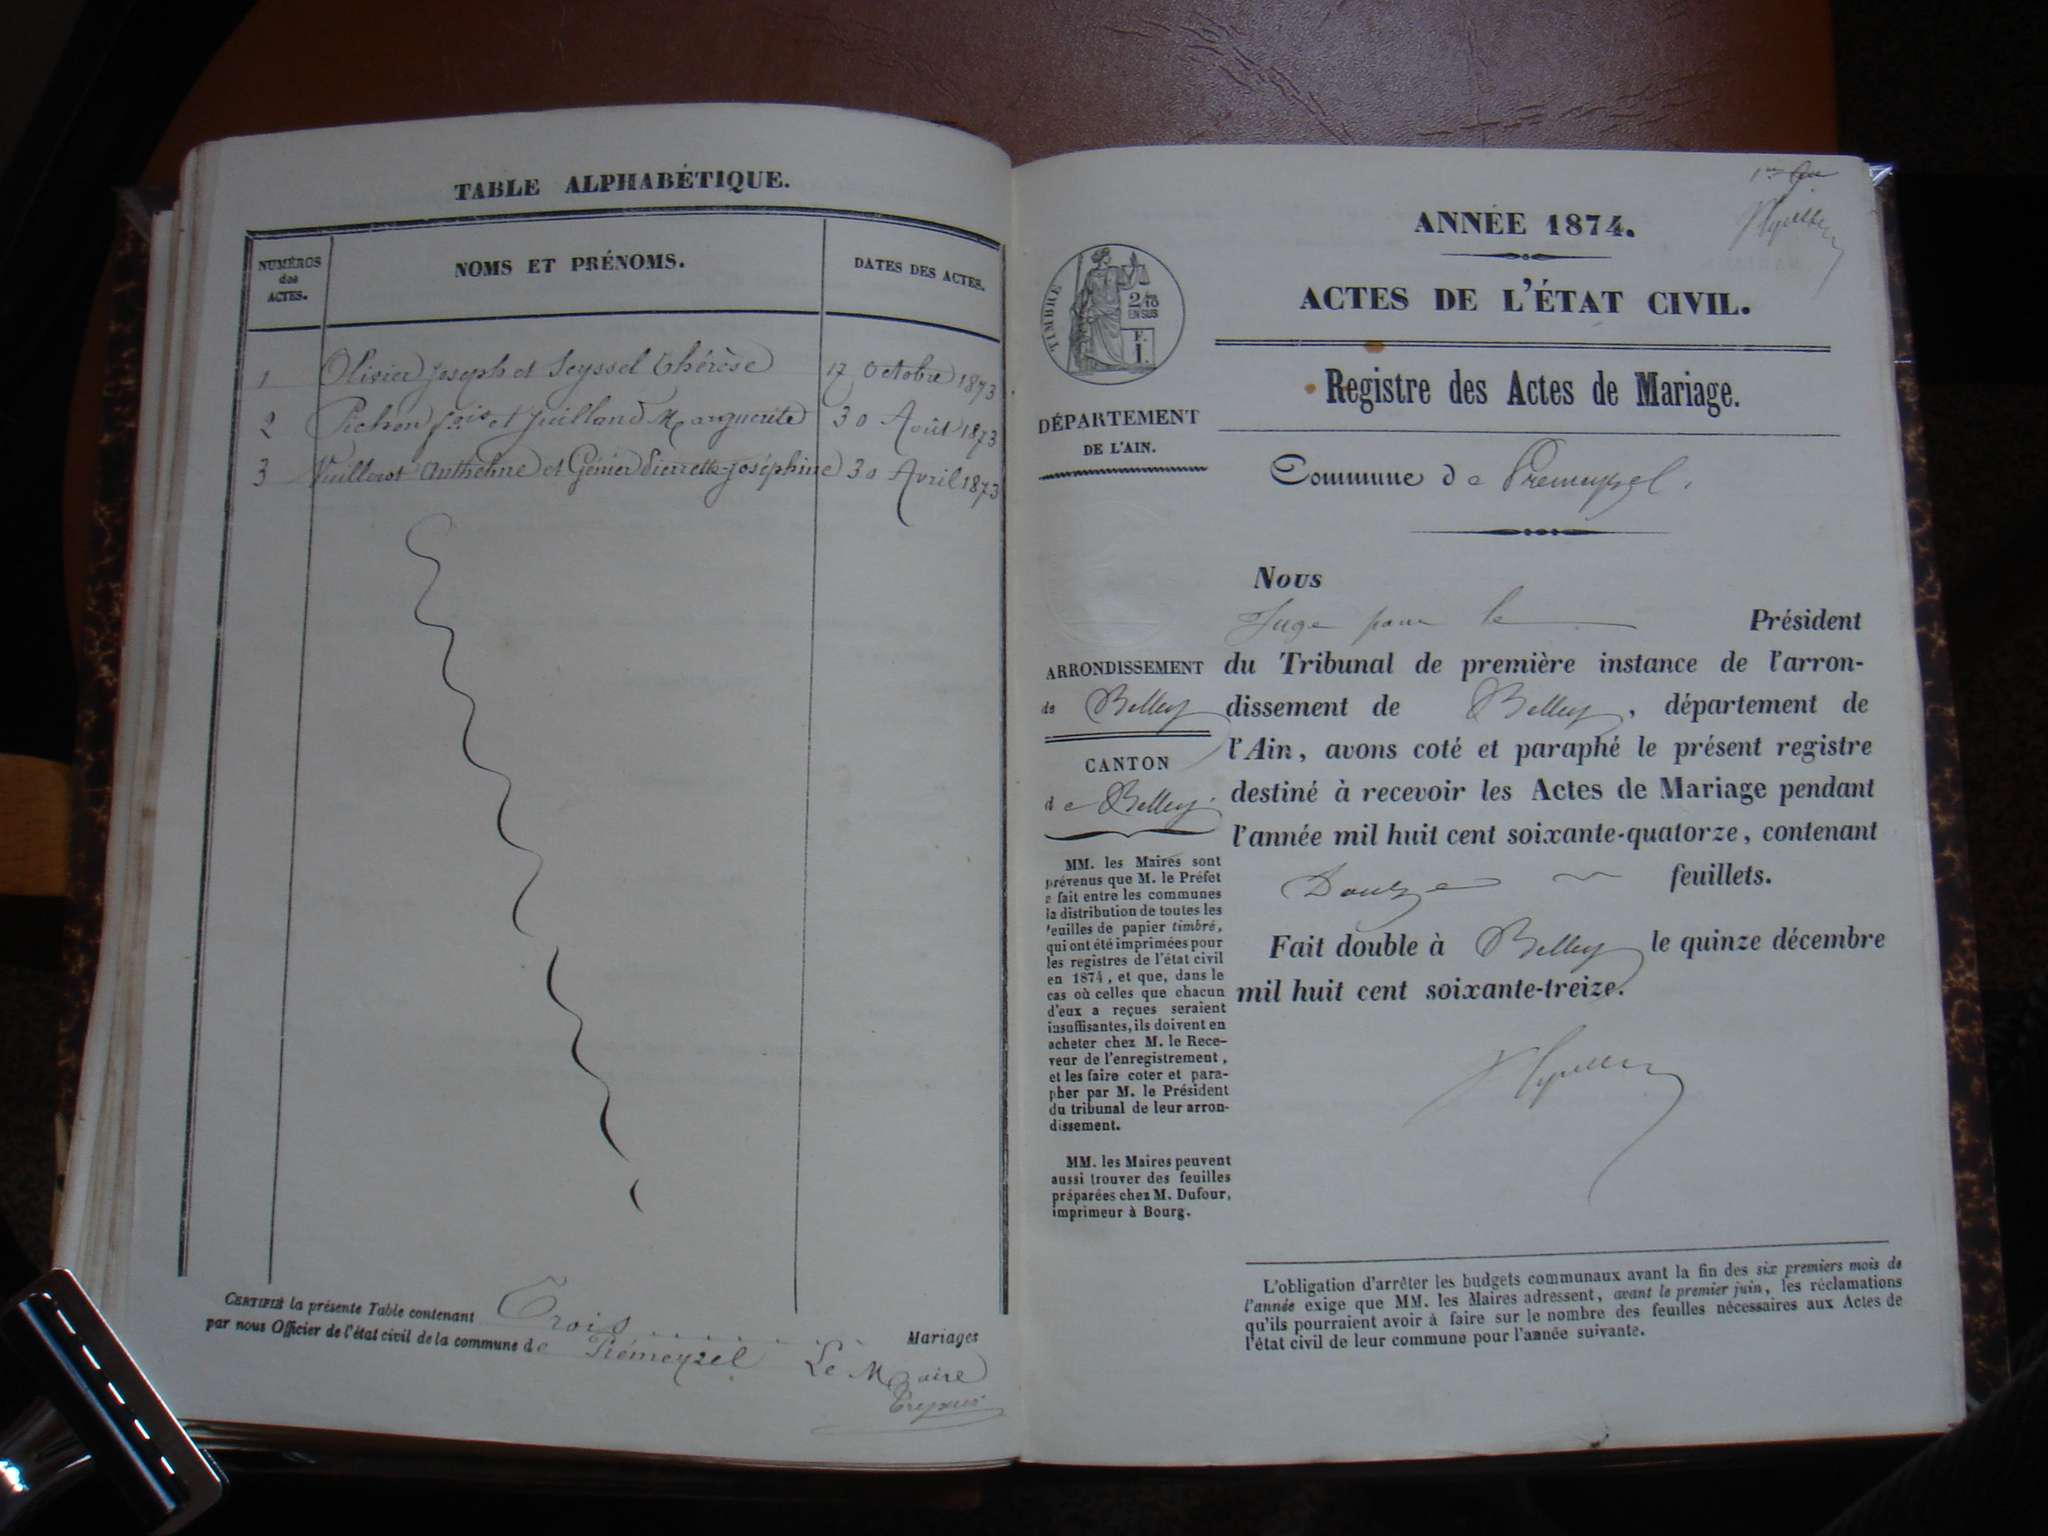 TABLE ALPHABÉTIQUE.
NUMÉROS
des
ACTES.
NOMS ET PRÉNOMS.
DATES DES ACTES.
1 Olivier Joseph et Seyssel Thérèse 17 Octobre 1873
2 Pichon fcois et Juilland Marguerite 30 Août 1873
3 Vuillerot Anthelme et Génier Pierrette-Joséphine 30 Avril 1873
CERTIFIÉ la présente Table contenant Trois Mariages
par nous Officier de l'état civil de la commune de Prémeyzel Le Maire
ANNÉE 1874.
ACTES DE L'ÉTAT CIVIL.
Registre des Actes de Mariage.
TIMBRE
2/10
EN SUS
F.
1.
DÉPARTEMENT
DE L'AIN.
Commune de Premeyzel.
Nous
Juge pour le Président
du Tribunal de première instance de l'arron-
dissement de Belley, département de
l'Ain, avons coté et paraphé le présent registre
destiné à recevoir les Actes de Mariage pendant
l'année mil huit cent soixante-quatorze, contenant
Douze feuillets.
Fait double à Belley le quinze décembre
mil huit cent soixante-treize.
ARRONDISSEMENT
de Belley
CANTON
de Belley.
MM. les Maires sont
prévenus que M. le Préfet
a fait entre les communes
la distribution de toutes les
feuilles de papier timbré,
qui ont été imprimées pour
les registres de l'état civil
en 1874, et que, dans le
cas où celles que chacun
d'eux a reçues seraient
insuffisantes, ils doivent en
acheter chez M. le Rece-
veur de l'enregistrement,
et les faire coter et para-
pher par M. le Président
du tribunal de leur arron-
dissement.
MM. les Maires peuvent
aussi trouver des feuilles
préparées chez M. Dufour,
imprimeur à Bourg.
L'obligation d'arrêter les budgets communaux avant la fin des six premiers mois de
l'année exige que MM. les Maires adressent, avant le premier juin, les réclamations
qu'ils pourraient avoir à faire sur le nombre des feuilles nécessaires aux Actes de
l'état civil de leur commune pour l'année suivante.